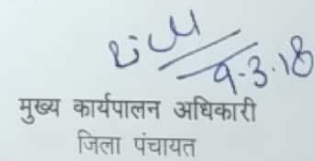 9-3-18
मुख्य कार्यपालन अधिकारी
जिला पंचायत